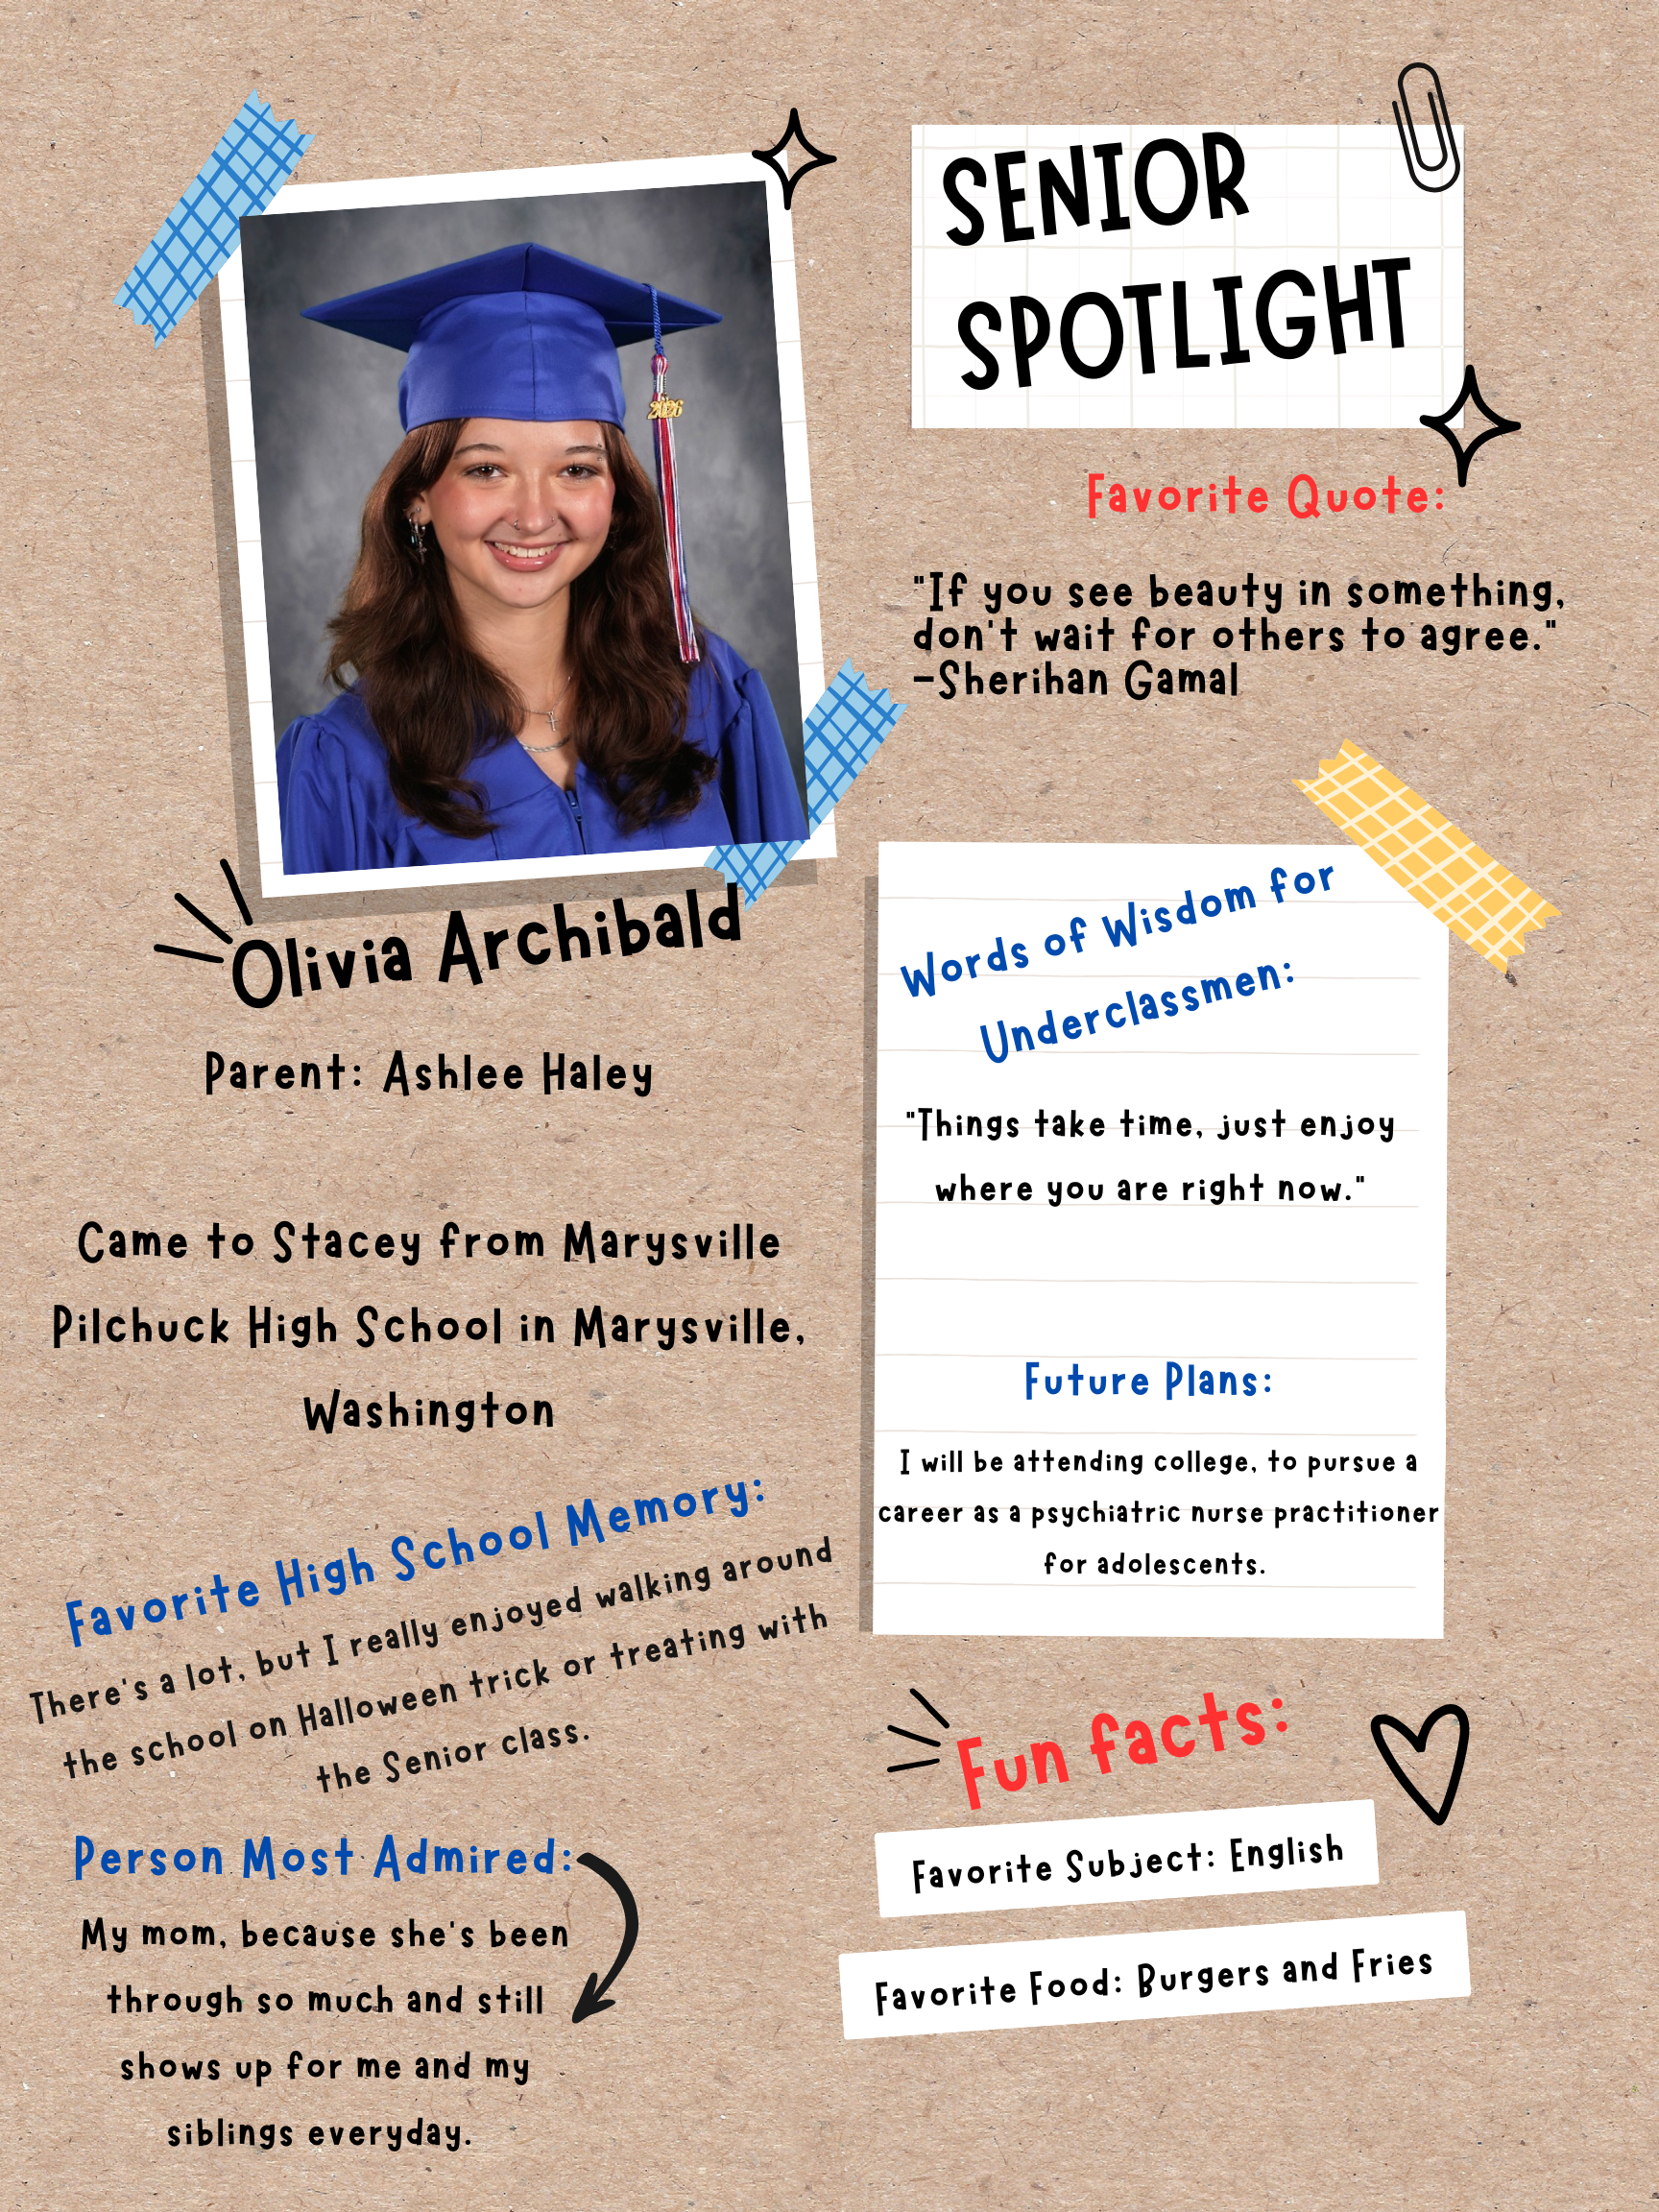 SENIOR
SPOTLIGHT
2026
Favorite Quote:
"If you see beauty in something,
don't wait for others to agree."
-Sherihan Gamal
Olivia Archibald
Parent: Ashlee Haley
Came to Stacey from Marysville
Pilchuck High School in Marysville,
Washington
Favorite High School Memory:
There's a lot, but I really enjoyed walking around
the school on Halloween trick or treating with
the Senior class.
Person Most Admired:
My mom, because she's been
through so much and still
shows up for me and my
siblings everyday.
Words of Wisdom for
Underclassmen:
"Things take time, just enjoy
where you are right now."
Future Plans:
I will be attending college, to pursue a
career as a psychiatric nurse practitioner
for adolescents.
Fun facts:
Favorite Subject: English
Favorite Food: Burgers and Fries